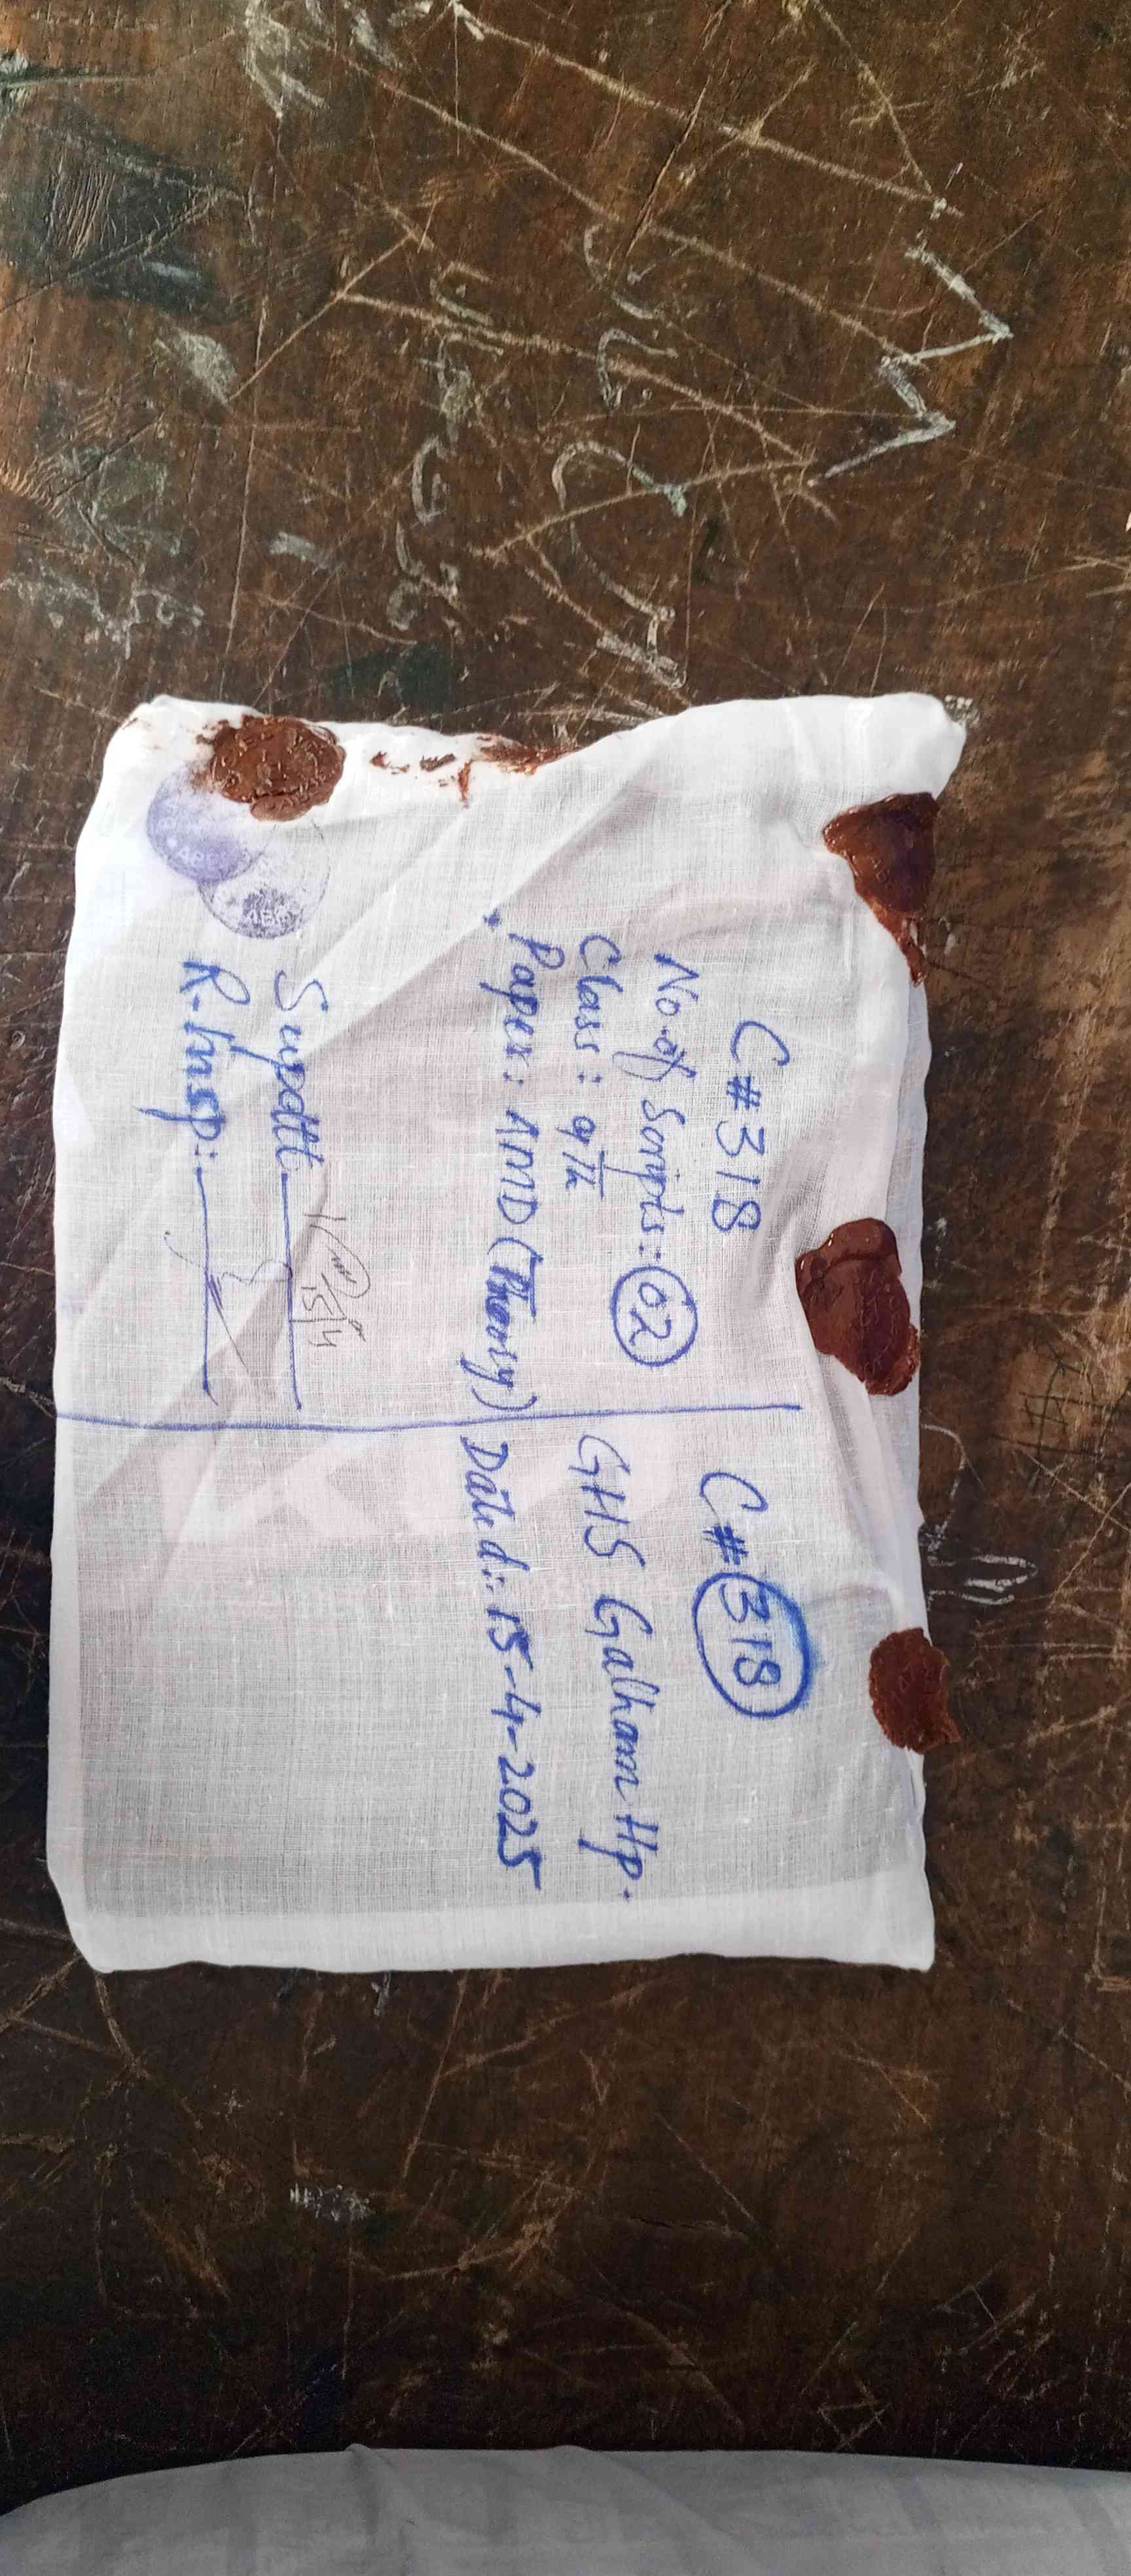 C # 318
No. of Scripts:- 02
Class: 9th
Paper: AMD (Theory)
Supdtt.
15/4
R-Insp:-
C # 318
GHS Galham Hp.
Dated:- 15-4-2025